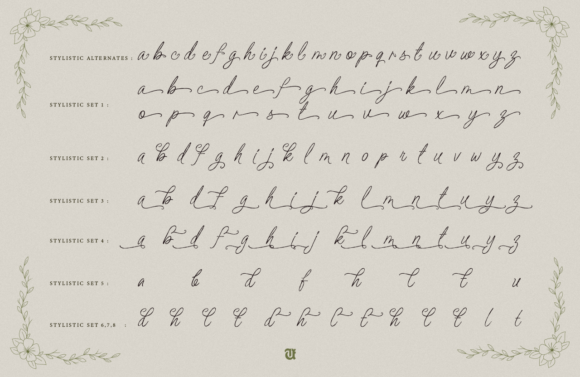 STYLISTIC ALTERNATES : a b c d e f g h i j k l m n o p q r s t u v w x y z
STYLISTIC SET 1 : a b c d e f g h i j k l m n
o p q r s t u v w x y z
STYLISTIC SET 2 : a b d f g h i j k l m n o p r t u v w y z
STYLISTIC SET 3 : a b d f g h i j k l m n t u y z
STYLISTIC SET 4 : a b d f g h i j k l m n t u y z
STYLISTIC SET 5 : a b d f h l t u
STYLISTIC SET 6,7,8 :